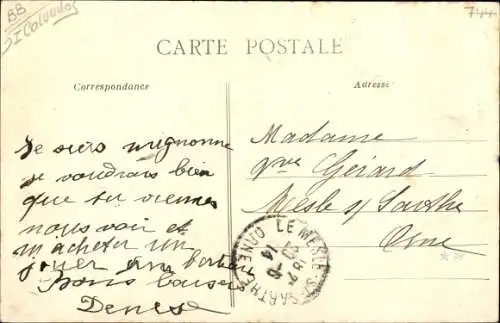 BB
744
CARTE POSTALE
Correspondance
Adresse
Je suis mignonne
je voudrais bien
que tu viennes
nous voir et
m'acheter un
jouer
Bons baisers
Denise
Madame
Vve Gérard
Mesle s/ Sarthe
Orne
LE MESLE-S-SARTHE
ORNE